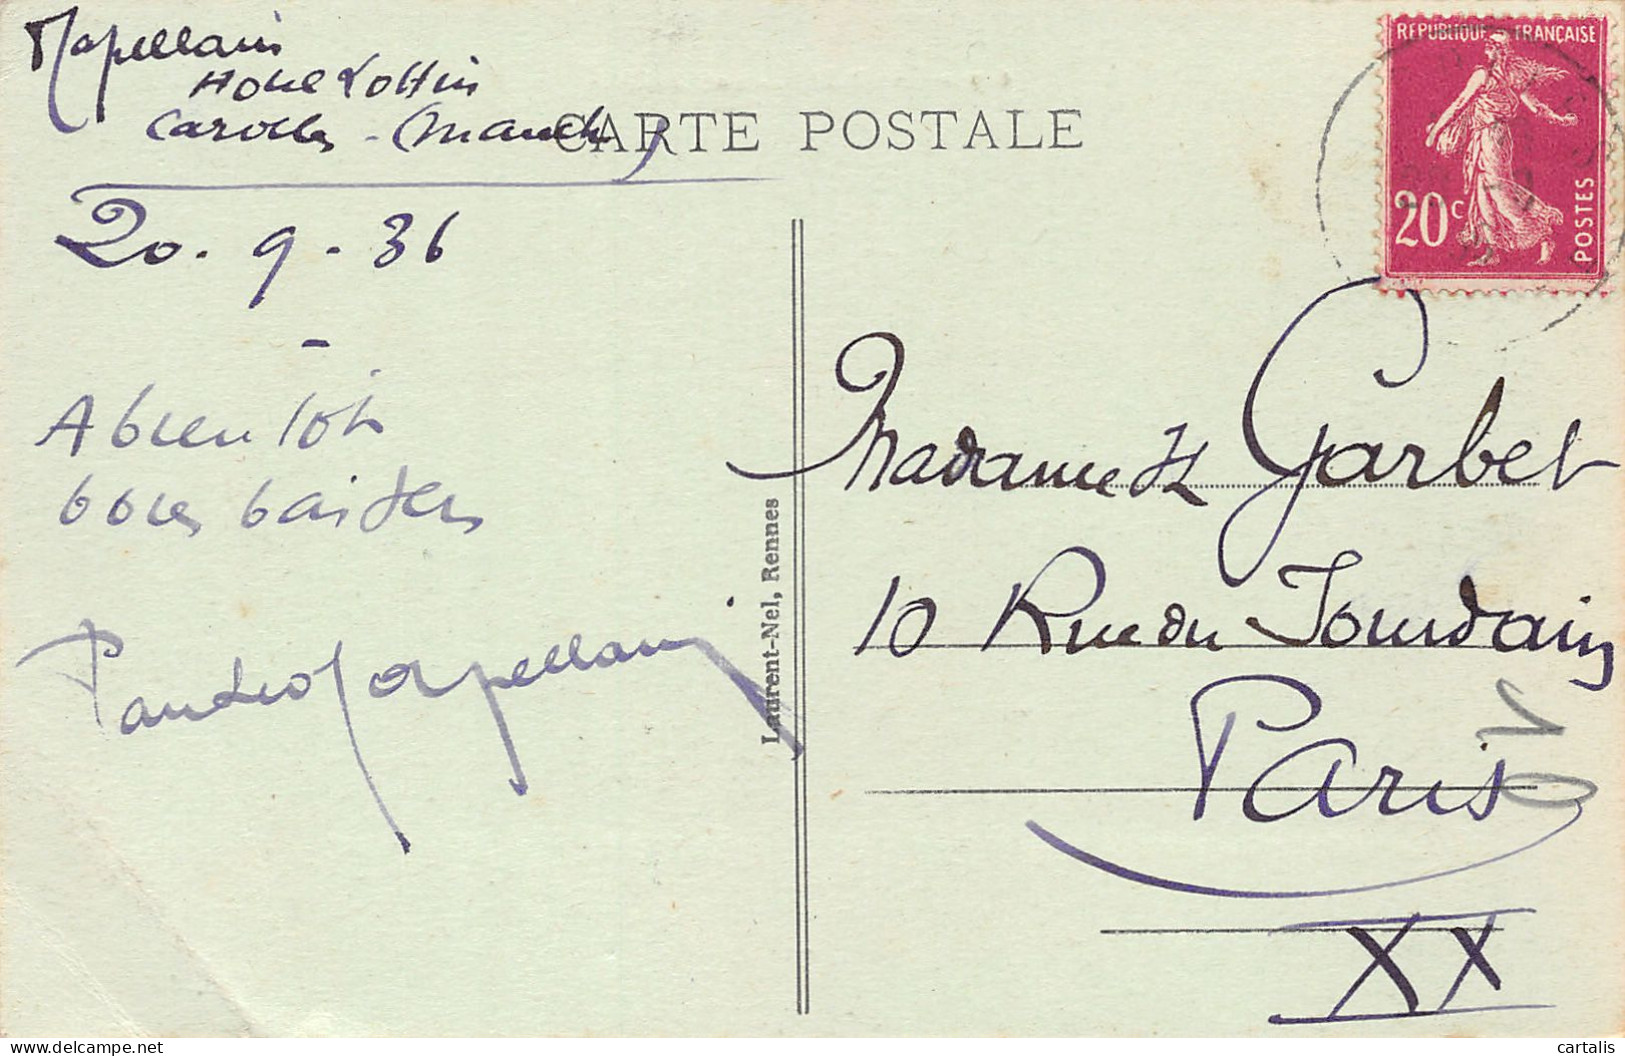 Hotel Lottin
Carolles - (Manche)
CARTE POSTALE
20. 9 - 36
A bientôt
bons baisers
Laurent-Nel, Rennes
REPUBLIQUE FRANÇAISE
20c
POSTES
Madame H Garbet
10 Rue du Jourdain
Paris
XX
delcampe.net
cartalis